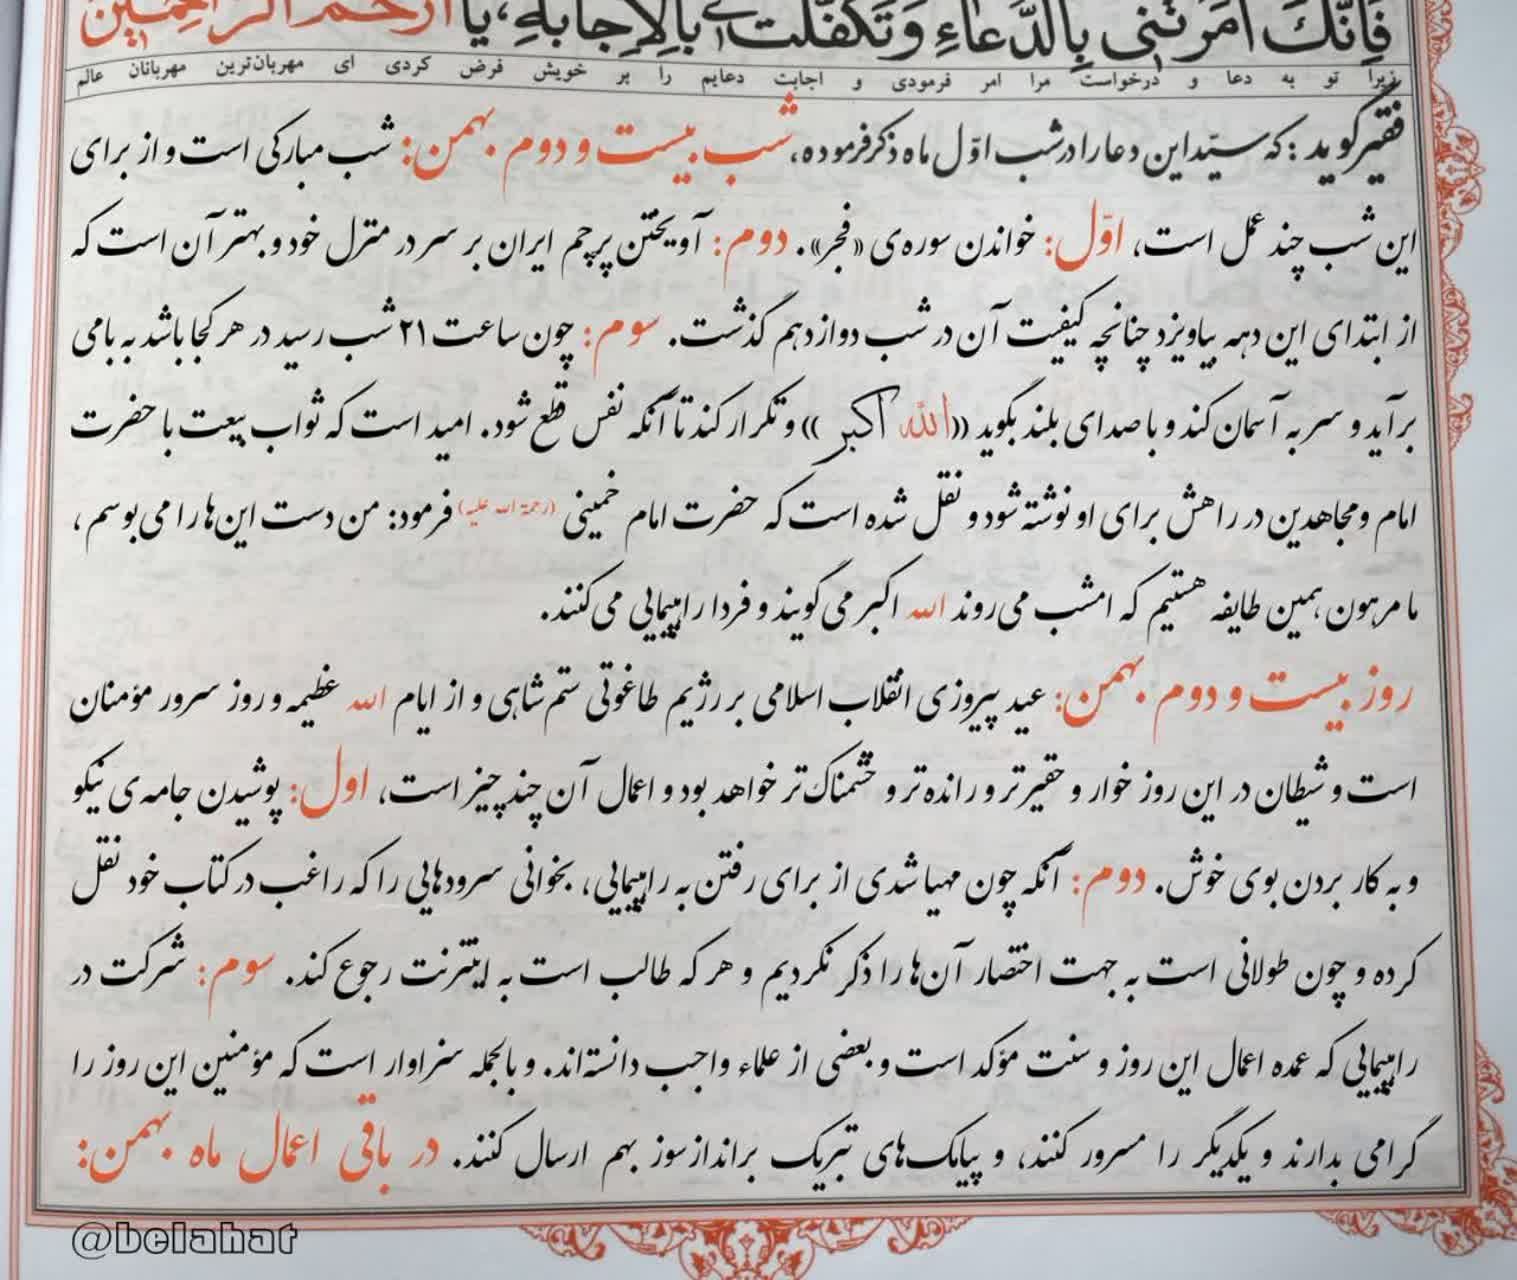 فَاِنَّكَ اَمَرْتَنى بِالدَّعاءِ وَ تَكَفَّلْتَ بِالْاِجابَةِ، یا اَرْحَمَ الرّاحِمینَ
زیرا تو به دعا و درخواست مرا امر فرمودی و اجابت دعایم را بر خویش فرض کردی ای مهربان‌ترین مهربانان عالم
فقیر گوید: که سیّد این دعا را در شب اوّل ماه ذکر فرموده، شب بیست و دوم بهمن: شب مبارکی است و از برای
این شب چند عمل است، اوّل: خواندن سوره‌ی «فجر». دوم: آویختن پرچم ایران بر سر در منزل خود و بهتر آن است که
از ابتدای این دهه بیاویزد چنانچه کیفیت آن در شب دوازدهم گذشت. سوم: چون ساعت ۲۱ شب رسید در هر کجا باشد به بامی
برآید و سر به آسمان کند و با صدای بلند بگوید «الله اکبر» و تکرار کند تا آنکه نفس قطع شود. امید است که ثواب بیعت با حضرت
امام و مجاهدین در راهش برای او نوشته شود و نقل شده است که حضرت امام خمینی (رحمة الله علیه) فرمود: من دست این‌ها را می‌بوسم،
ما مرهون همین طایفه هستیم که امشب می‌روند الله اکبر می‌گویند و فردا راهپیمایی می‌کنند.
روز بیست و دوم بهمن: عید پیروزی انقلاب اسلامی بر رژیم طاغوتی ستم‌شاهی و از ایام الله عظیمه و روز سرور مؤمنان
است و شیطان در این روز خوار و حقیرتر و رانده‌تر و خشمناک‌تر خواهد بود و اعمال آن چند چیز است، اول: پوشیدن جامه‌ی نیکو
و به کار بردن بوی خوش. دوم: آنکه چون مهیا شدی از برای رفتن به راهپیمایی، بخوانی سرودهایی را که راغب در کتاب خود نقل
کرده و چون طولانی است به جهت اختصار آن‌ها را ذکر نکردیم و هر که طالب است به اینترنت رجوع کند. سوم: شرکت در
راهپیمایی که عمده اعمال این روز و سنت مؤکد است و بعضی از علماء واجب دانسته‌اند. و بالجمله سزاوار است که مؤمنین این روز را
گرامی بدارند و یکدیگر را مسرور کنند، و پیامک‌های تبریک براندازسوز بهم ارسال کنند. در باقی اعمال ماه بهمن:
@belahat